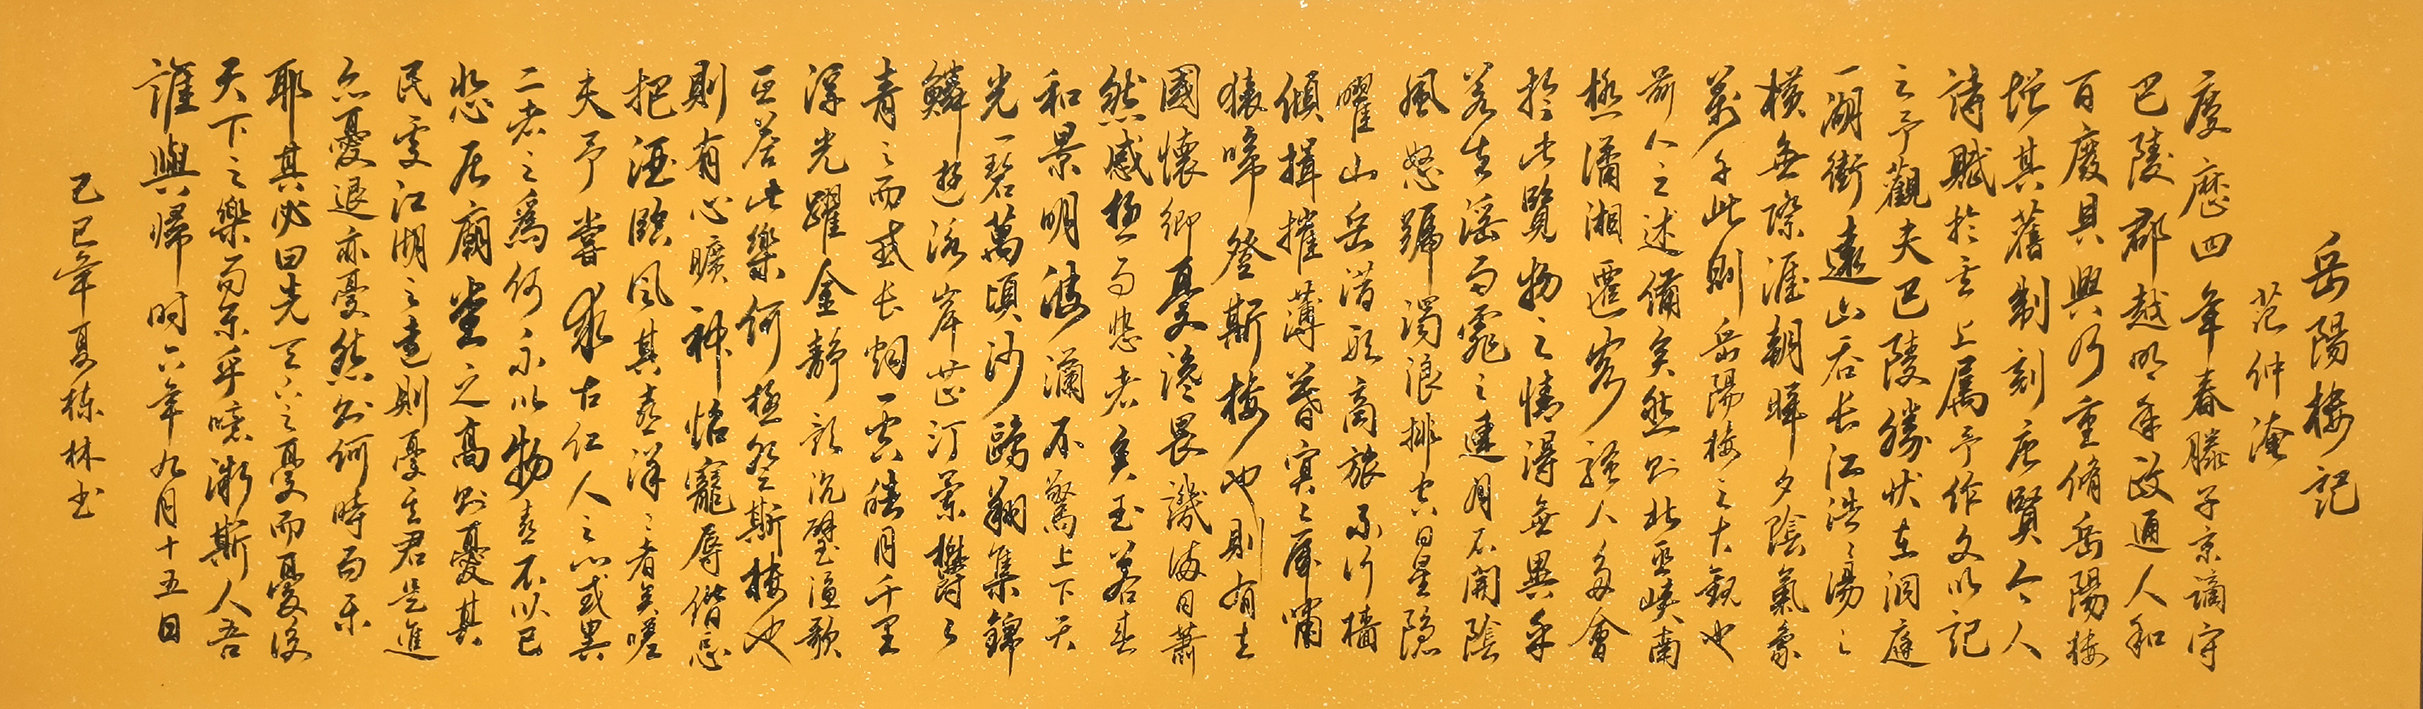 岳陽樓記
范仲淹
慶歷四年春滕子京謫守
巴陵郡越明年政通人和
百廢具興乃重脩岳陽樓
增其舊制刻唐賢今人
詩賦於其上屬予作文以記
之予觀夫巴陵勝狀在洞庭
一湖銜遠山吞长江浩浩湯湯
橫無際涯朝暉夕陰氣象
萬千此則岳陽樓之大觀也
前人之述備矣然則北巫峽南
極瀟湘遷客騷人多會
於此覽物之情得無異乎
若夫淫雨霏霏連月不開陰
風怒號濁浪排空日星隱
曜山岳潛形商旅不行檣
傾楫摧薄暮冥冥虎嘯
猿啼登斯樓也則有去
國懷鄉憂讒畏譏滿目蕭
然感極而悲者矣至若春
和景明波瀾不驚上下天
光一碧萬頃沙鷗翔集錦
鱗遊泳岸芷汀蘭鬱鬱
青青而或长烟一空皓月千里
浮光躍金靜影沉璧漁歌
互答此樂何極登斯樓也
則有心曠神怡寵辱偕忘
把酒臨风其喜洋洋者矣嗟
夫予嘗求古仁人之心或異
二者之為何不以物喜不以己
悲居廟堂之高則憂其
民處江湖之遠則憂其君是進
亦憂退亦憂然則何時而乐
耶其必曰先天下之憂而憂後
天下之樂而乐乎噫微斯人吾
誰與歸时六年九月十五日
己巳年夏栋林书